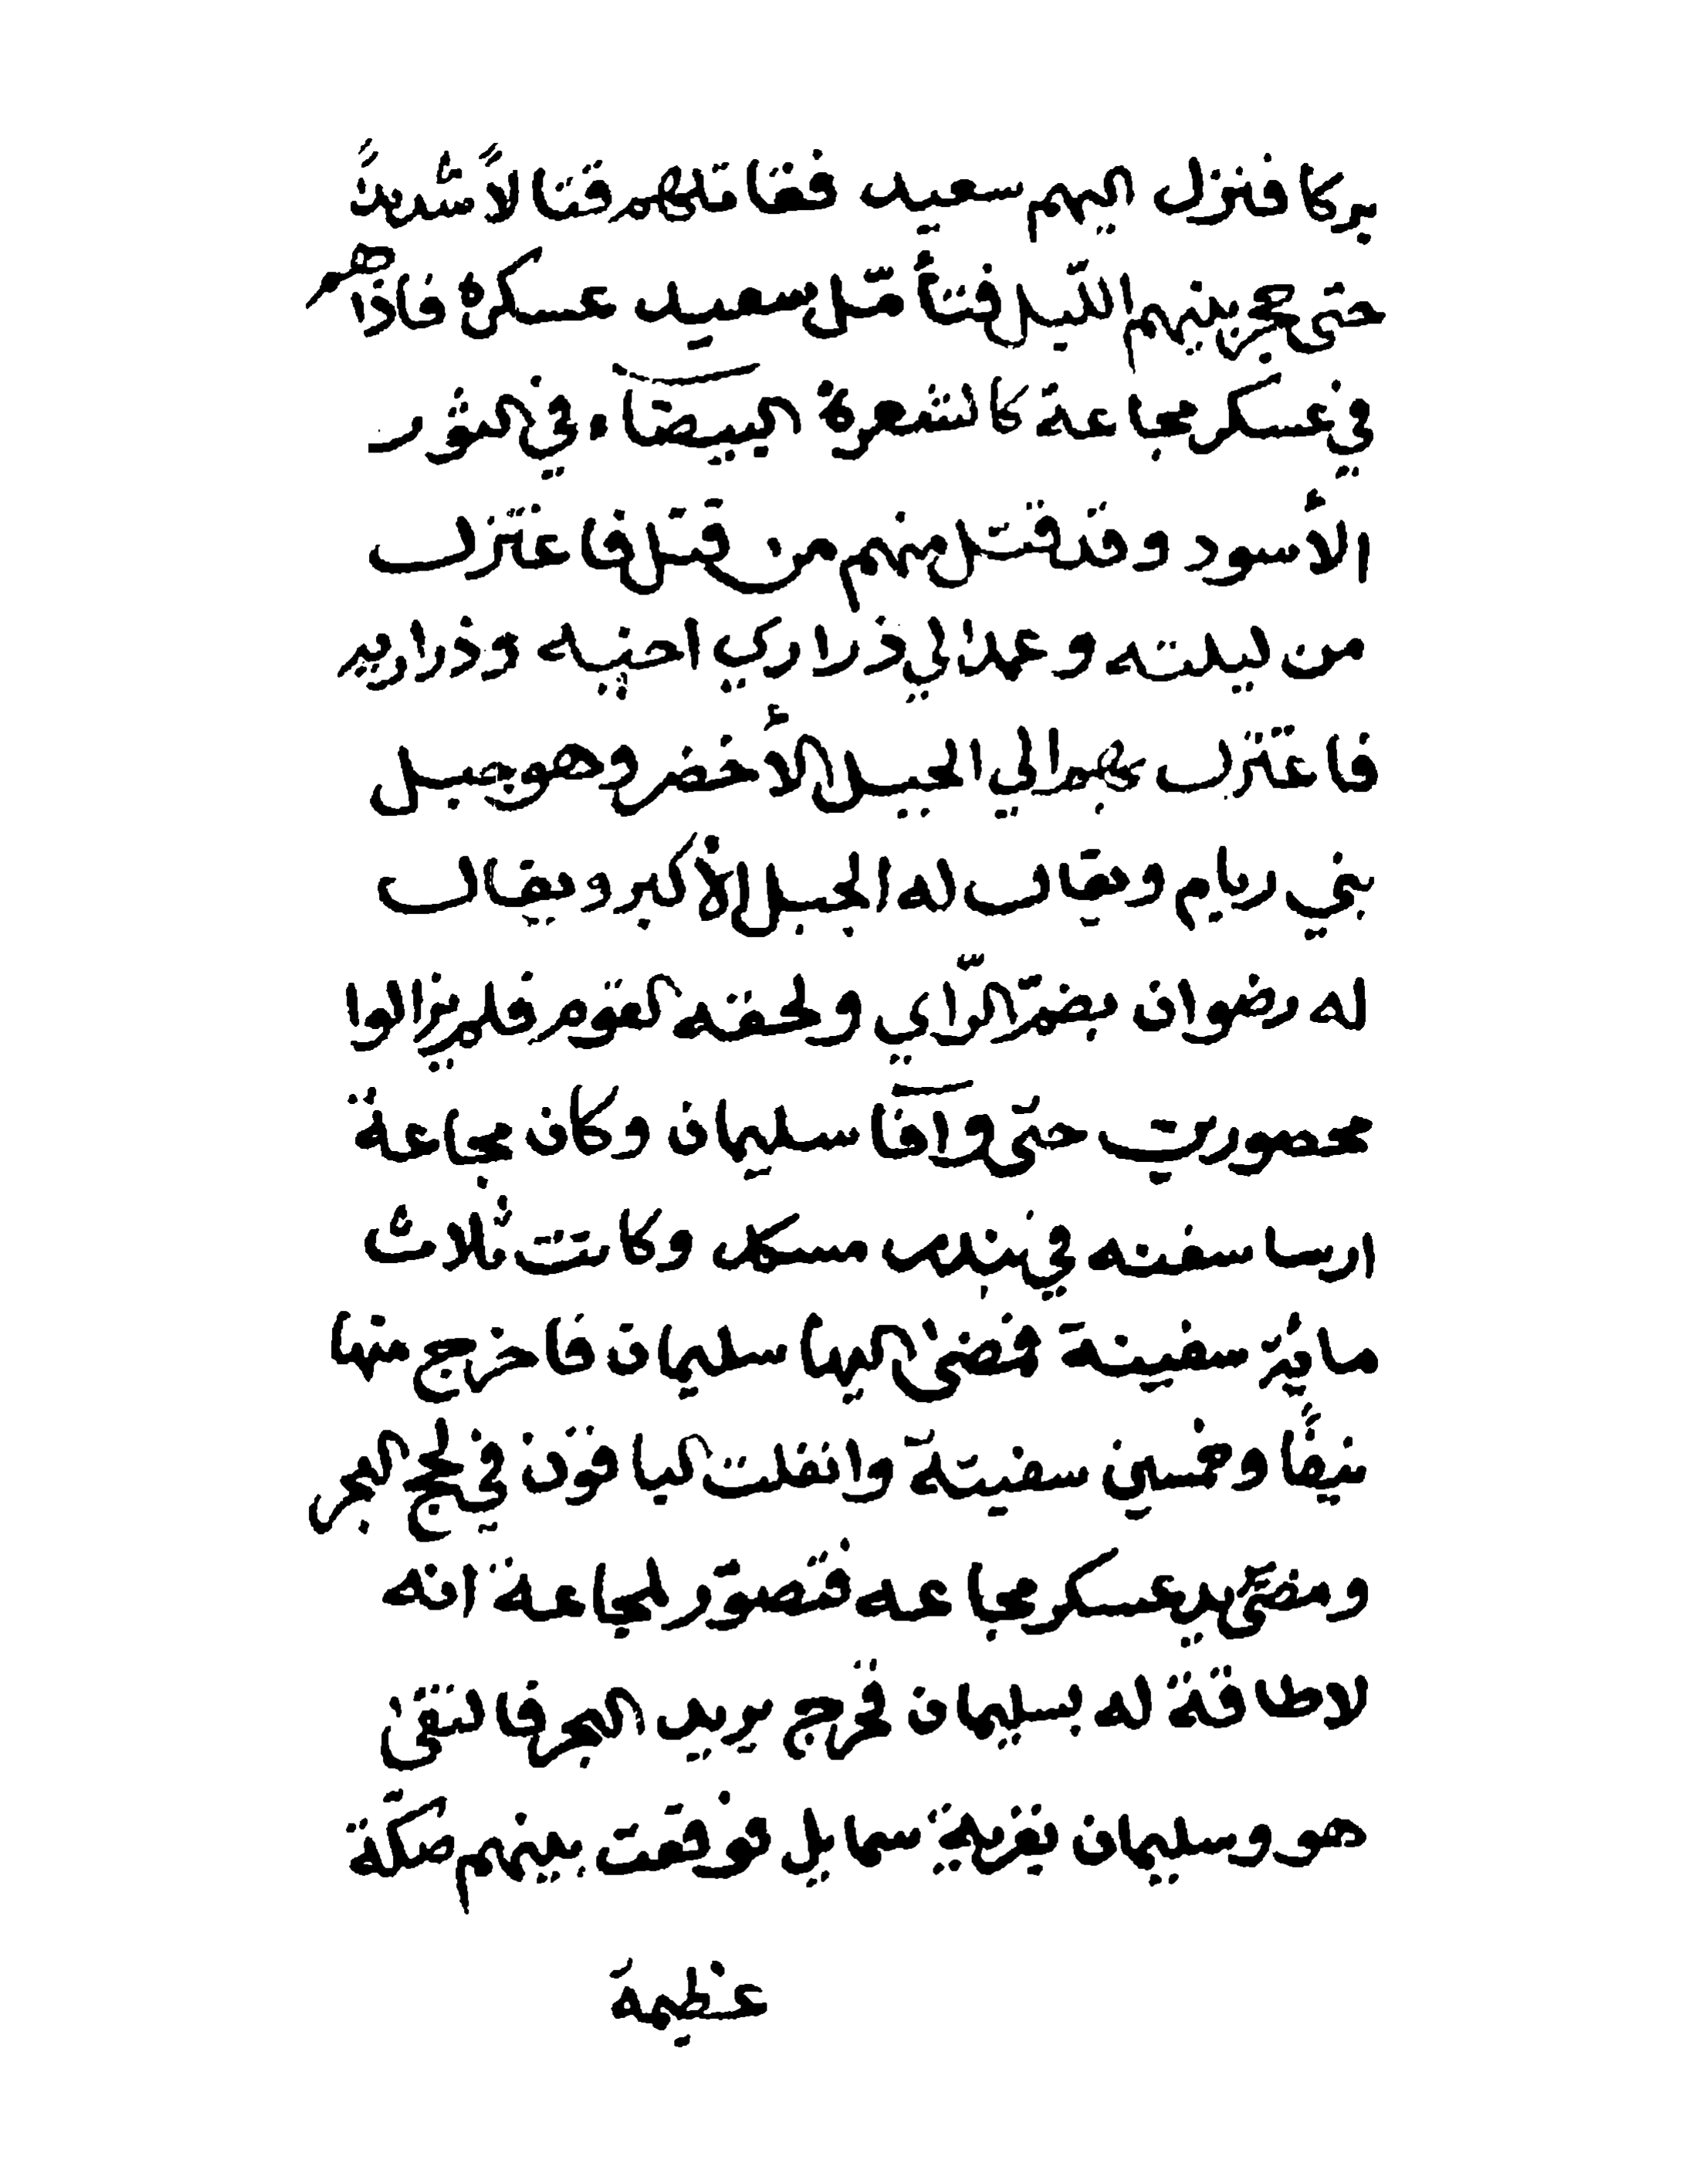 بركا فنزل اليهم سعيد فقاتلهم قتالاً شديداً
حتى حجز بينهم الليل فتأمّل سعيد عسكره فاذا هم
في عسكر مجاعة كالشعرة البيضآء في الثور
الأسود وقد قتل منهم من قتل فاعتزل
من ليلته وعمد الي ذراري اخيه وذراريه
فاعتزل بهم الي الجبل الأخضر وهو جبل
بني ريام ويقال له الجبل الأكبر ويقال
له رضوان بضم الرّاي ولحقه القوم فلم يزالوا
محصورين حتى وآفا سليمان وكان مجاعة
ارسا سفنه في بندر مسكد وكانت ثلاث
مائة سفينة فمضى اليها سليمان فاخرج منها
نيفًا وخمسين سفينة وانفلت الباقون في لجج البحر
ومضى يريد عسكر مجاعه فتصوّر لمجاعة انه
لا طاقة له بسليمان فخرج يريد البحر فالتقى
هو وسليمان بقرية سمايل فوقعت بينهم صكّة
عظيمة